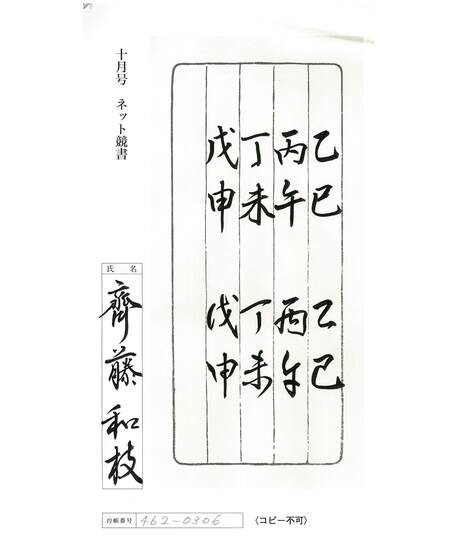 乙巳 乙巳
丙午 丙午
丁未 丁未
戊申 戊申
十月号 ネット競書
氏名
齊藤和枝
台帳番号 462-0306
〈コピー不可〉